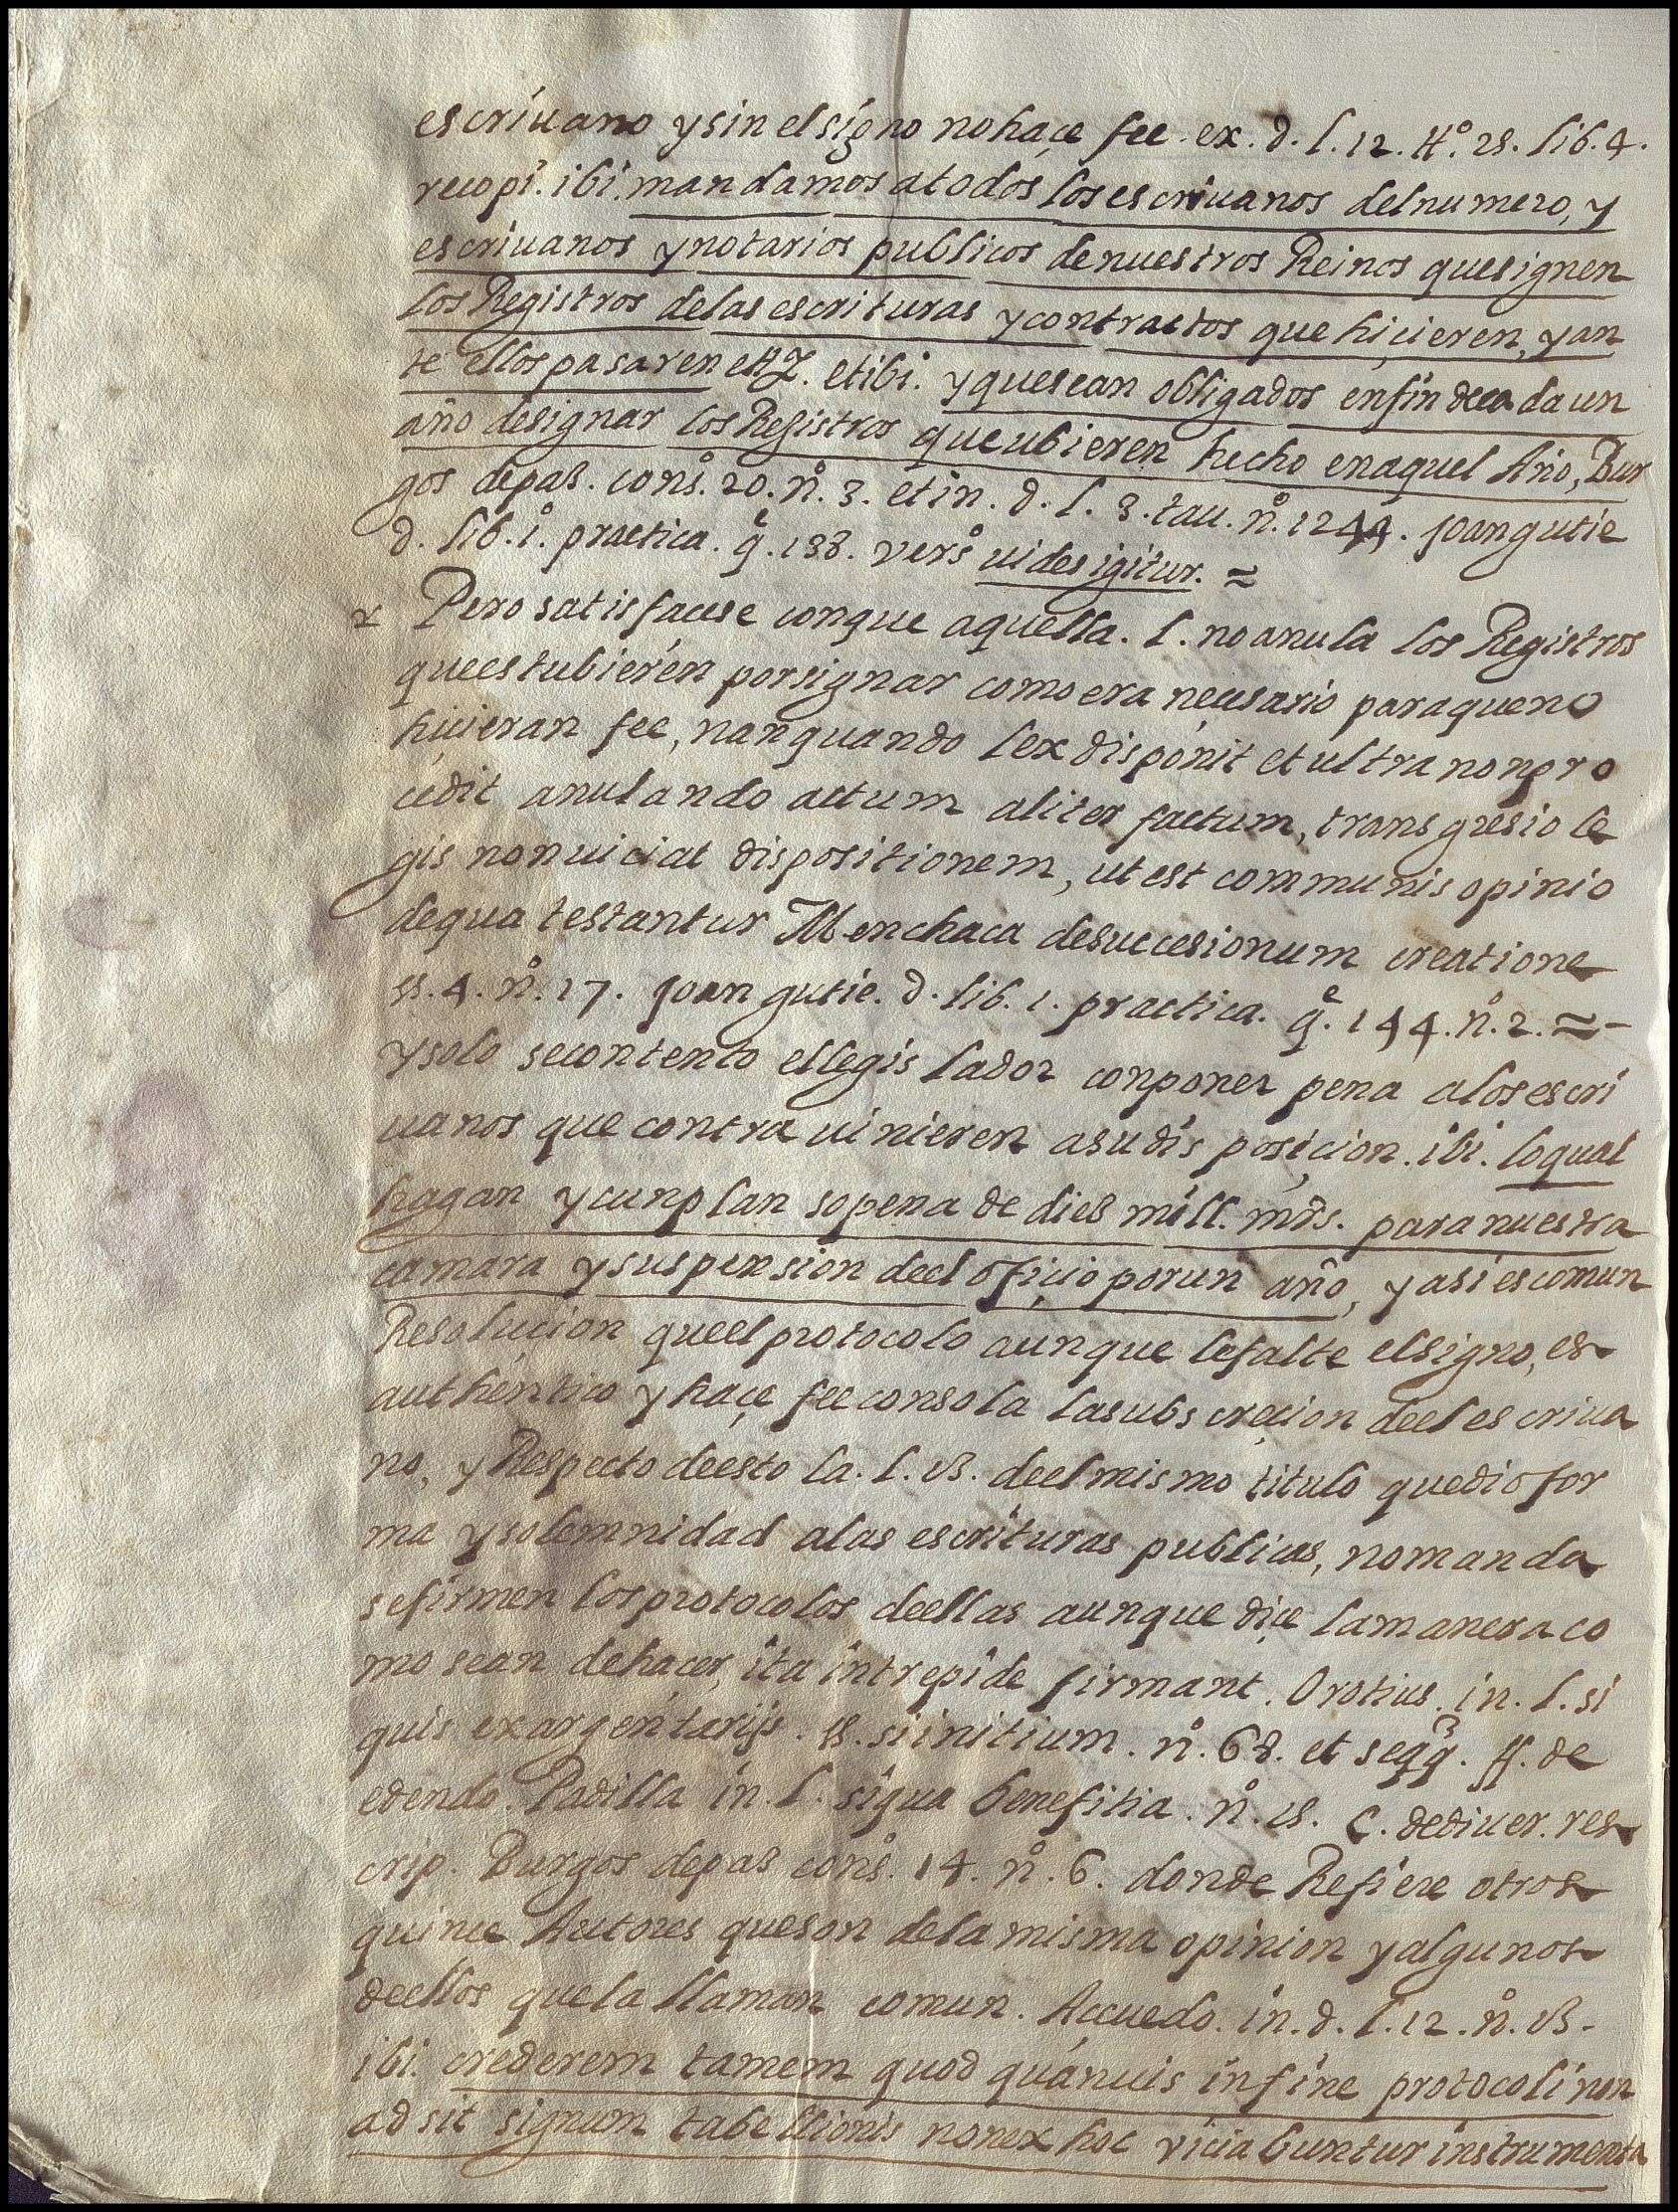 escriuano y sin el signo no haçe fee. ex. d. l. 12. tt.º 25. lib. 4.
recopi. ibi. mandamos a todos los escriuanos del numero, y
escriuanos y notarios publicos de nuestros Reinos que signen
los Registros de las escrituras y contractos que hiçieren, y an
te ellos pasaren ettz. et ibi. y que sean obligados en fin de cada un
año de signar los Registros que ubieren hecho en aquel Año, Bur
gos de pas. cons.º 20. n.º 3. et in. d. l. 3. tau. n.º 1244. Joan gutie
d. lib. 1.º practica. q.e 138. vers.º uides igitur. ≈
x Pero satisfacese con que aquella. l. no anula los Registros
que estubieren por signar como era neçesario para que no
hiçieran fee, nan quando lex disponit et ultra non pro
cedit anulando actum aliter factum, transgresio le
gis non uiciat dispositionem, ut est communis opinio
de qua testantur Menchaca de succesionum creatione
§. 4. n.º 17. Joan gutie. d. lib. 1. practica. q.e 144. n.º 2. ≈ -
y solo se contento el legislador con poner pena a los escri
uanos que contrauinieren a su disposiçion. ibi. lo qual
hagan y cunplan so pena de dies mill. mrs. para nuestra
camara y suspension de el ofiçio por un año, y asi es comun
Resoluçion que el protocolo aunque le falte el signo, es
authentico y haçe fee con sola la subscreçion de el escriua
no, y Respecto de esto la. l. 13. de el mismo titulo que dio for
ma y solemnidad a las escrituras publicas, no manda
se firmen los protocolos de ellas aunque diçe la manera co
mo sean de hacer, ita intrepide firmant. Orotius. in. l. si
quis ex argentarijs. §. si initium. n.º 68. et seqq. ff. de
edendo. Padilla in. l. si qua benefitia. n.º 15. C. de diuer. res
crip. Burgos de pas cons.º 14. n.º 6. donde Refiere otros
quince Autores que son de la misma opinion y algunos
de ellos que la llaman comun. Aceuedo. in. d. l. 12. n.º 13.
ibi. crederem tamem quod quanuis in fine protocoli non
adsit signum tabellionis non ex hoc viciabuntur instrumenta